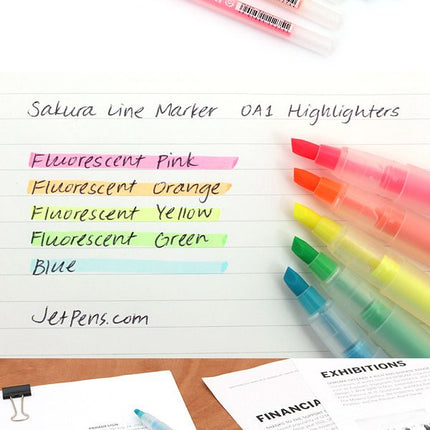 Sakura Line Marker OA1 Highlighters
Fluorescent Pink
Fluorescent Orange
Fluorescent Yellow
Fluorescent Green
Blue
JetPens.com
EXHIBITIONS
FINANCIA